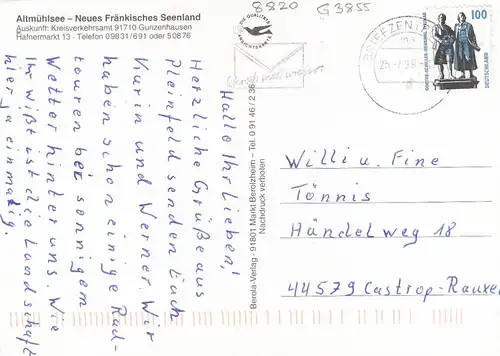 Altmühlsee – Neues Fränkisches Seenland
Auskunft: Kreisverkehrsamt 91710 Gunzenhausen
Hafnermarkt 13 - Telefon 09831/691 oder 50876
8820
G3855
DIE QUALITÄTS
ANSICHTSKARTE
Schreib mal wieder
BRIEFZEN
100
GOETHE-SCHILLER-DENKMAL WEIMAR
DEUTSCHLAND
Hallo Ihr Lieben!
Herzliche Grüße aus
Pleinfeld senden Euch
Karin und Werner. Wir
haben schon einige Rad-
touren bei sonnigem
Wetter hinter uns. Wie
Ihr wißt ist die Landschaft
hier ja einmalig.
Berola-Verlag - 91801 Markt Berolzheim - Tel. 0 91 46 / 2 36
Nachdruck verboten
Willi u. Fine
Tönnis
Händelweg 18
44579 Castrop-Rauxel